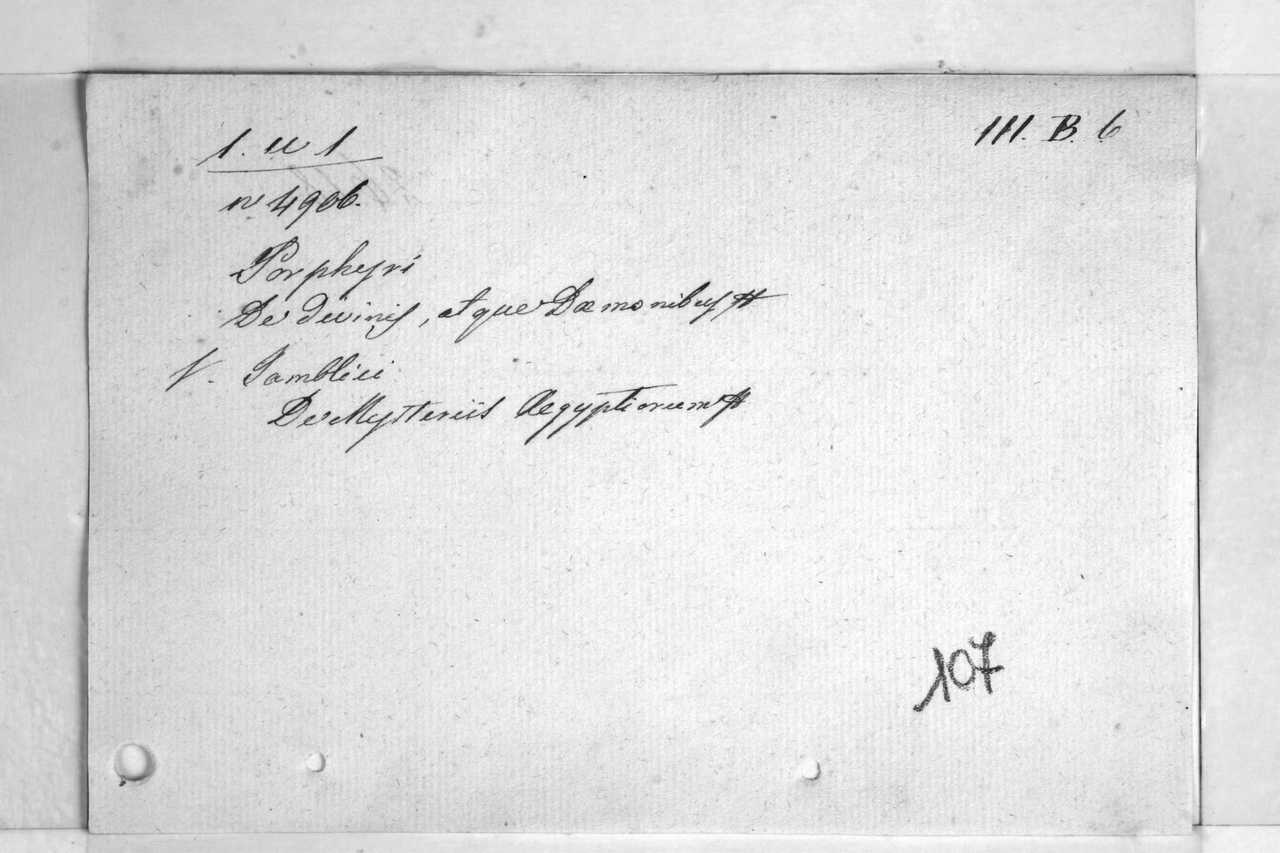 III. B. 6
1. u 1
nº 4906.
Porphyri
De divinis, atque Dæmonibus #
V. Jamblici
De Mysteriis Aegyptiorum #
107